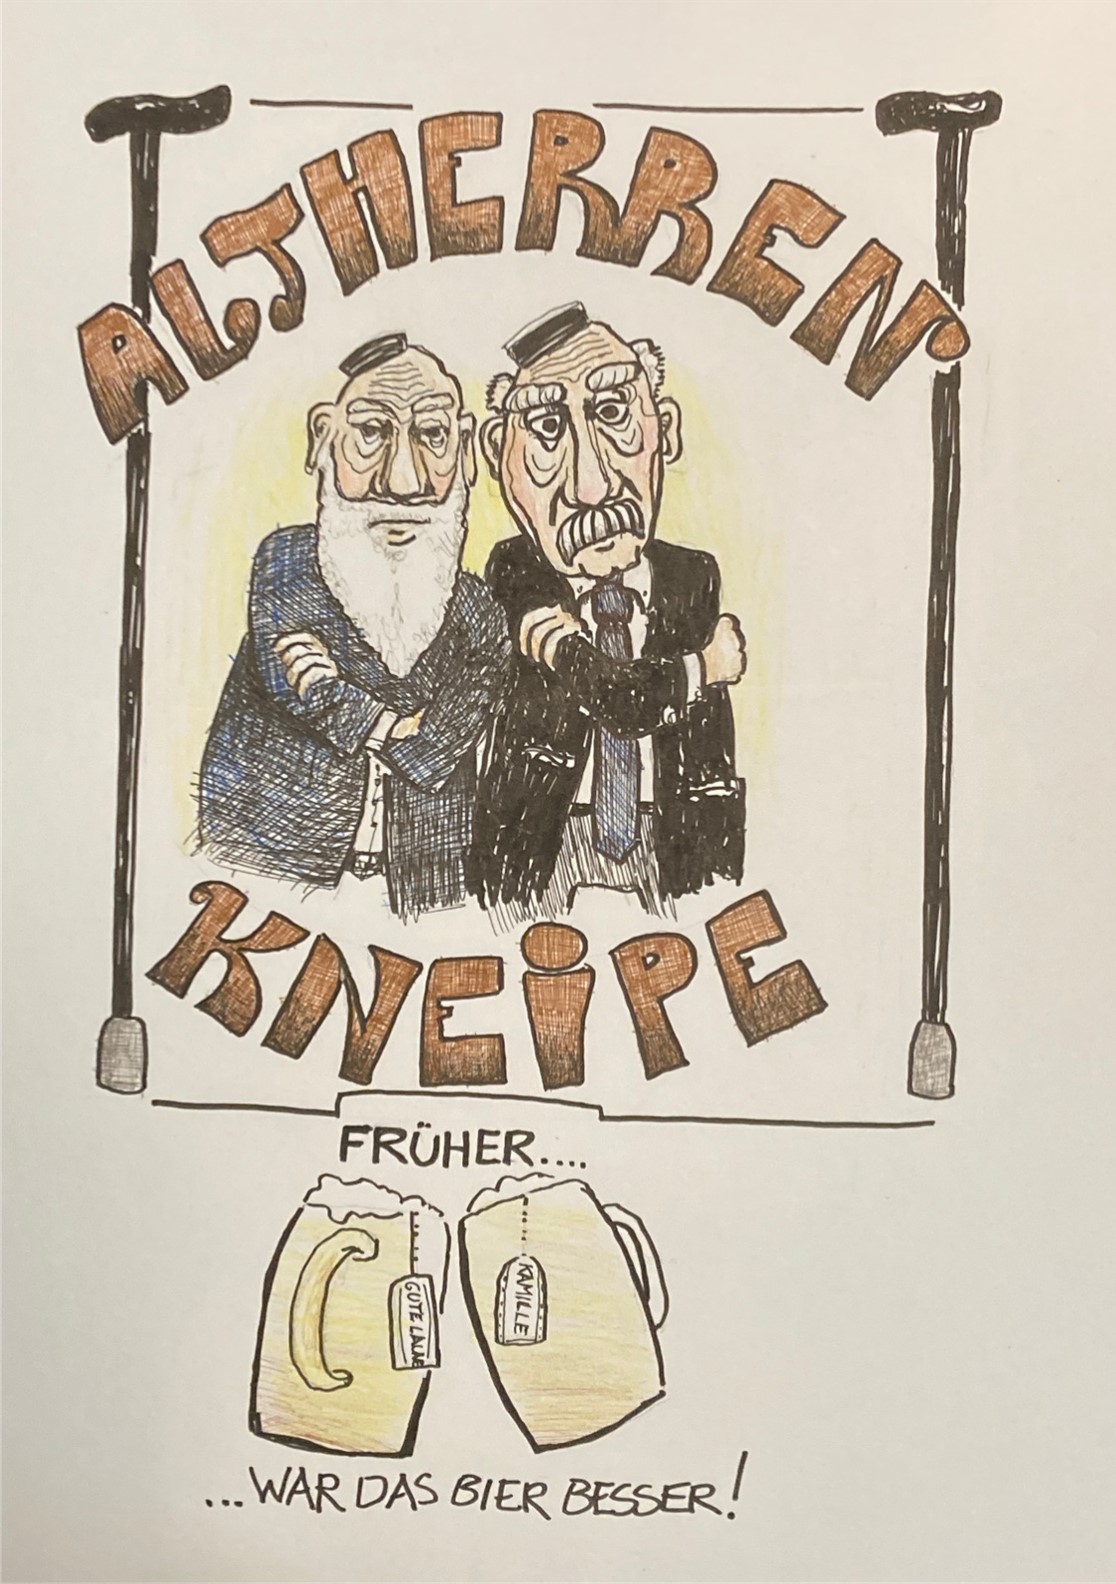 ALTHERREN
KNEIPE
FRÜHER....
GUTE LAUNE
KAMILLE
...WAR DAS BIER BESSER!